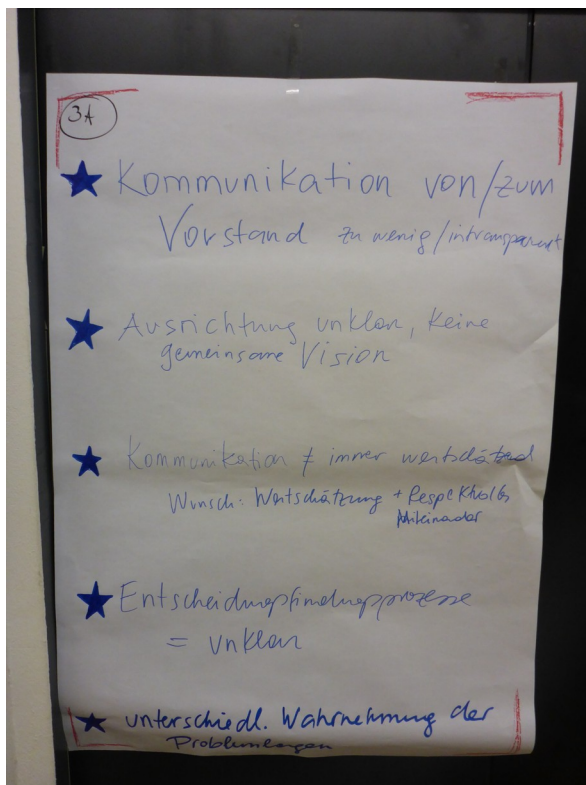 3A
Kommunikation von/zum
Vorstand zu wenig/intransparent
Ausrichtung unklar, keine
gemeinsame Vision
Kommunikation ≠ immer wertschätzend
Wunsch: Wertschätzung + Respektvolles
Miteinander
Entscheidungsfindungsprozesse
= unklar
unterschiedl. Wahrnehmung der
Problemlagen